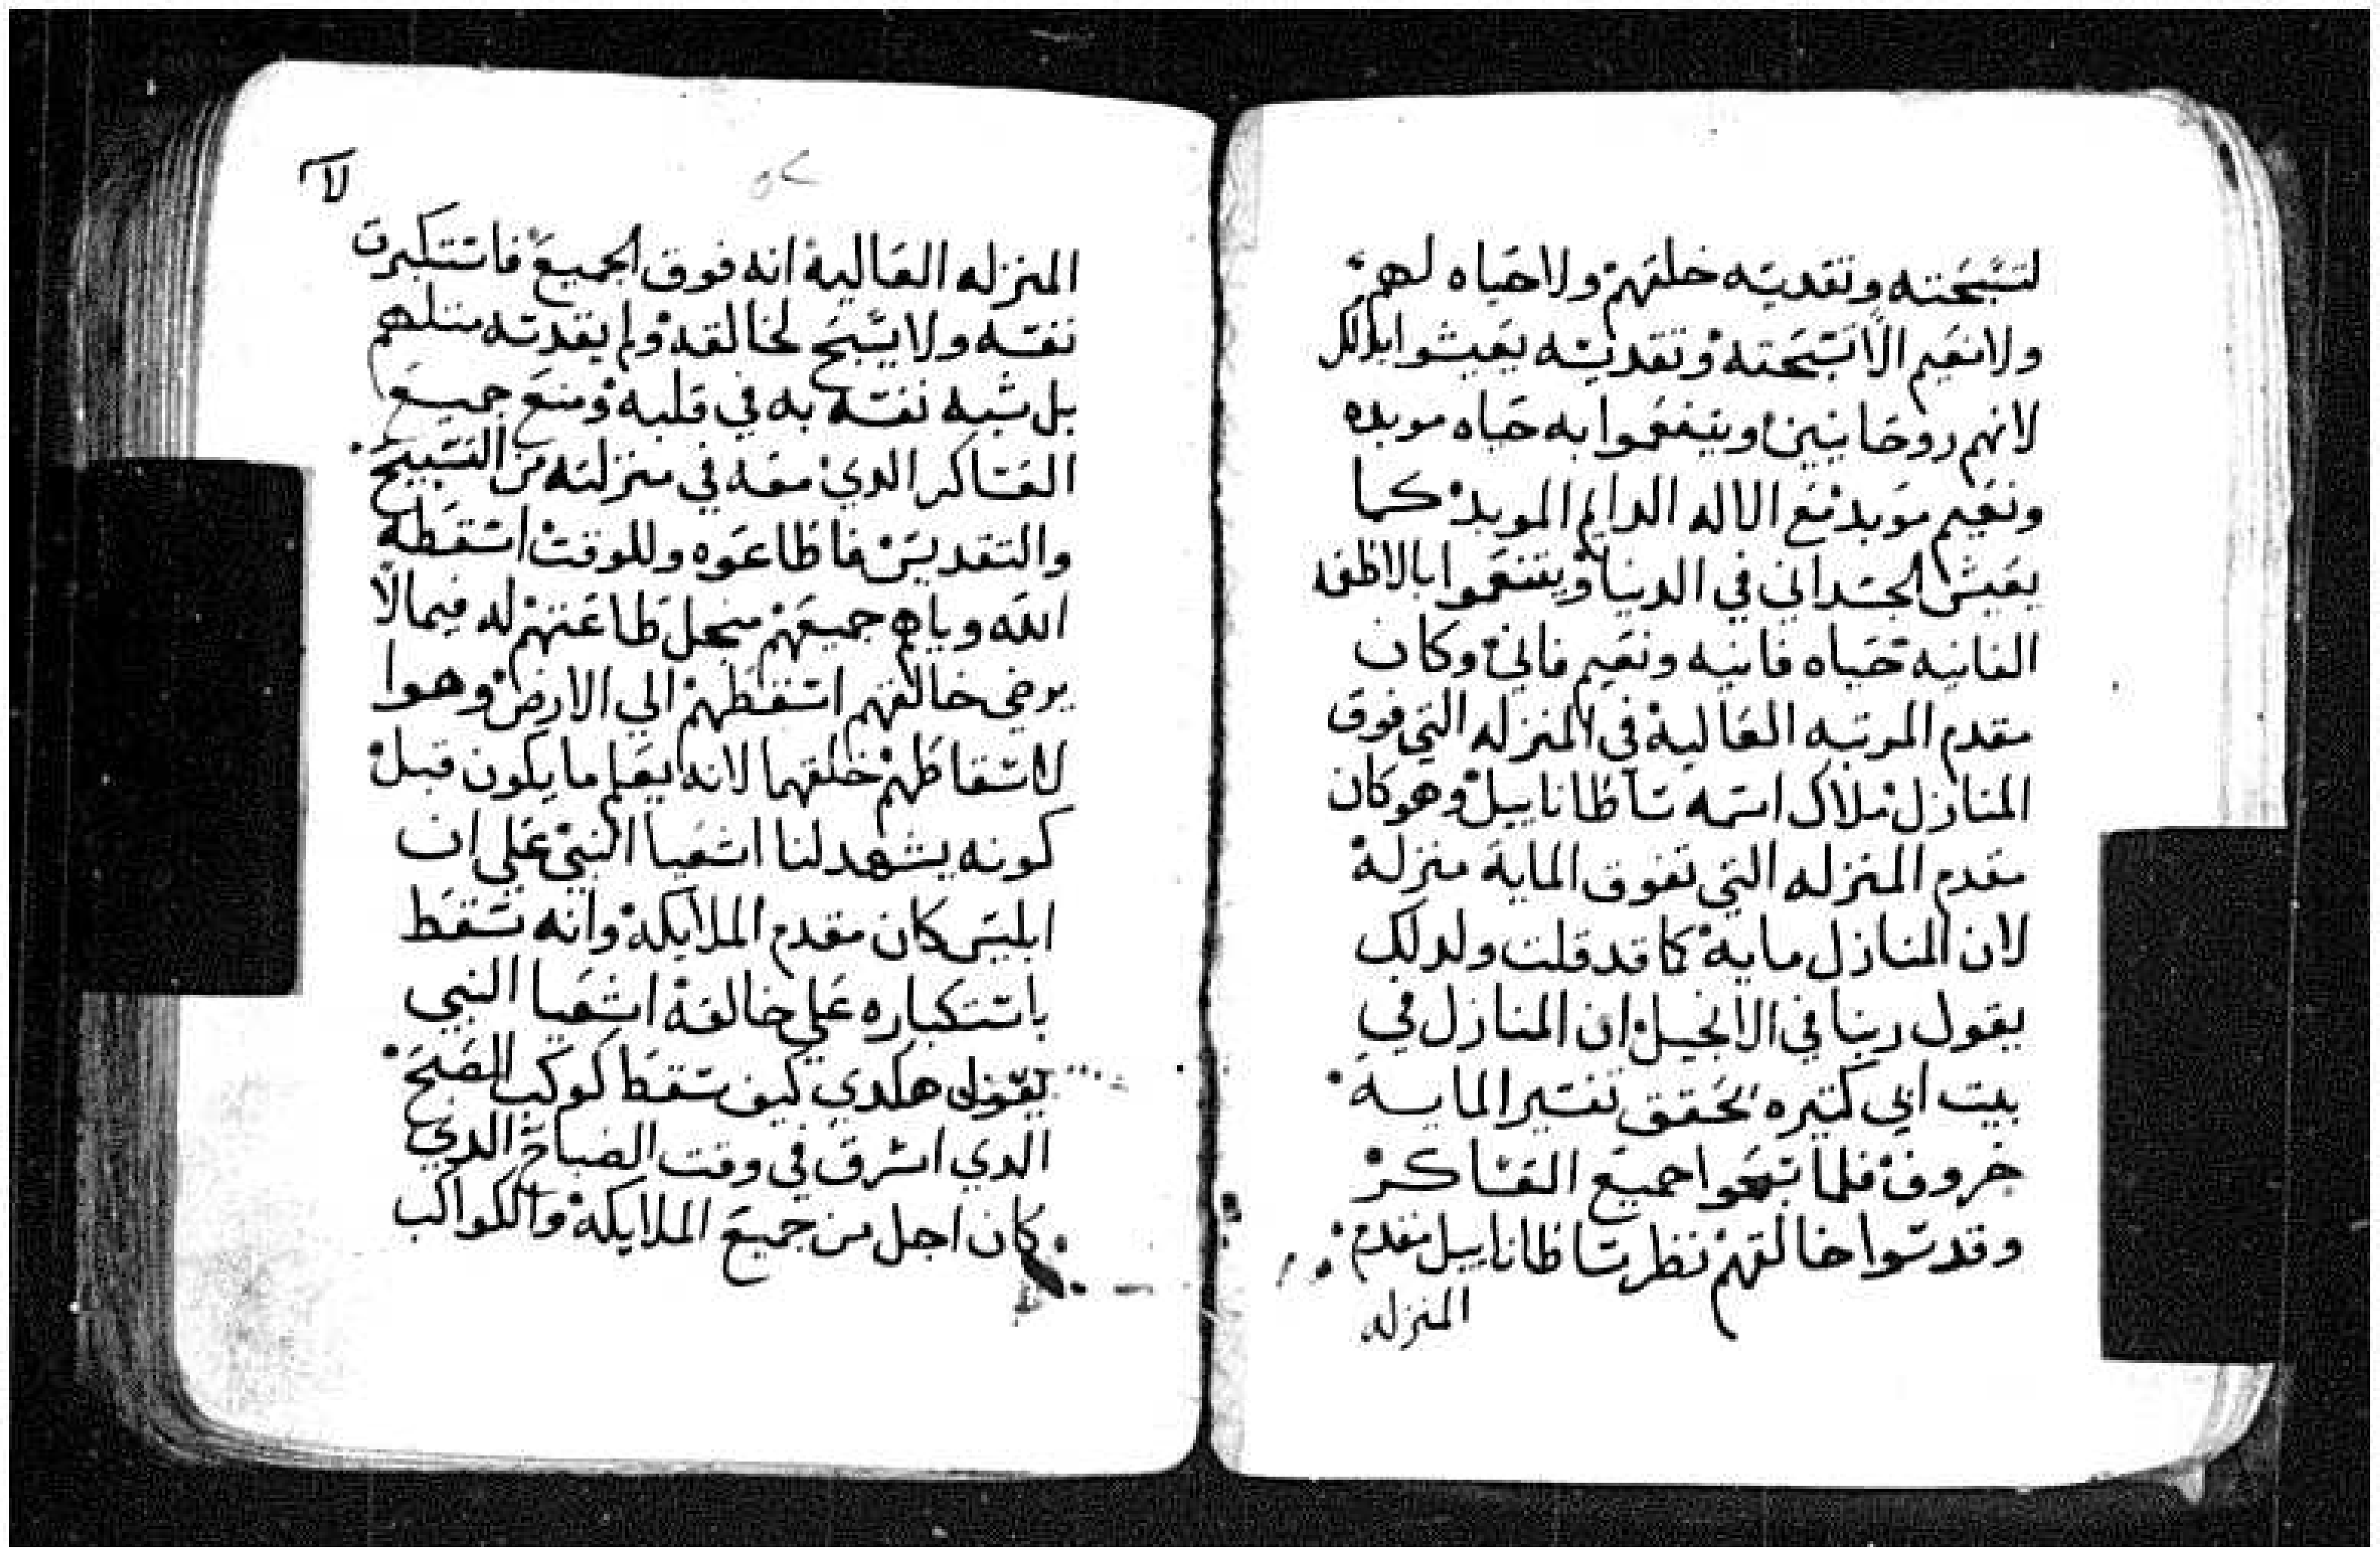 لتسبحته وتقديسه خلقهم ولا حياه لهم
ولا نعيم الا تسبحته وتقديسه يعيشوا بدلك
لانهم روحانيين ويتنعموا به حياه موبده
ونعيم موبد مع الاله الدايم الموبد كما
يعيش الجسداني في الدنيا ويتنعموا بالاطعمه
الفانيه حياه فانيه ونعيم فاني وكان
مقدم المرتبه العاليه في المنزله التي فوق
المنازل ملاك اسمه ساطاناييل وهو كان
مقدم المنزله التي تفوق الماية منزلة
لان المنازل ماية كما قد قلت ولدلك
يقول ربنا في الانجيل ان المنازل في
بيت ابي كتيره بحقق تفسير الماية
خروف فلما سبحوا جميع العساكر
وقدسوا خالقهم نظر ساطاناييل مقدم
المنزله
المنزله العالية انه فوق الجميع فاستكبرت
نفسه ولا يسبح لخالقه ولم يقدسه متلهم
بل شبه نفسه به في قلبه ومنع جميع
العساكر الدي معه في منزلته من التسبيح
والتقديس فاطاعوه وللوقت اسقطه
الله وياهم جميعهم منجل طاعتهم له فيما لا
يرضي خالقهم اسقطهم الي الارض وهوا
لاسقاطهم خلقهما لانه يعلم ما يكون قبل
كونه يشهد لنا اشعيا النبي علي ان
ابليس كان مقدم الملايكة وانه سقط
باستكباره علي خالقه اشعيا النبي
يقول هكدي كيف سقط كوكب الصبح
الدي اشرق في وقت الصباح الدي
كان اجل من جميع الملايكة والكواكب